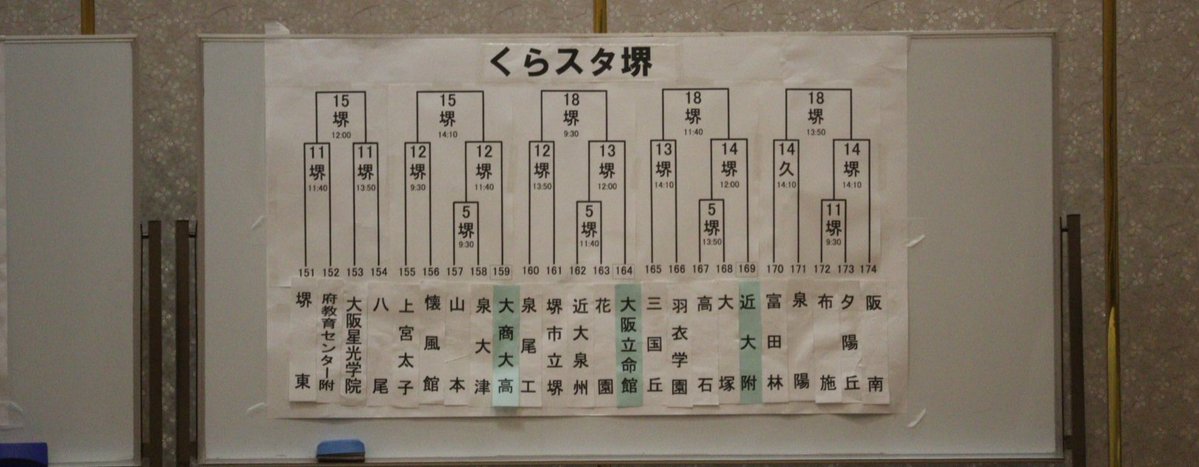 くらスタ堺
15 15 18 18 18
堺 堺 堺 堺 堺
12:00 14:10 9:30 11:40 13:50
11 11 12 12 12 13 13 14 14 14
堺 堺 堺 堺 堺 堺 堺 堺 久 堺
11:40 13:50 9:30 11:40 13:50 12:00 14:10 12:00 14:10 14:10
5 5 5 11
堺 堺 堺 堺
9:30 11:40 13:50 9:30
151 152 153 154 155 156 157 158 159 160 161 162 163 164 165 166 167 168 169 170 171 172 173 174
堺東
府教育センター附
大阪星光学院
八尾
上宮太子
懐風館
山本
泉大津
大商大高
泉尾工
堺市立堺
近大泉州
花園
大阪立命館
三国丘
羽衣学園
高石
大塚
近大附
富田林
泉陽
布施
夕陽丘
阪南